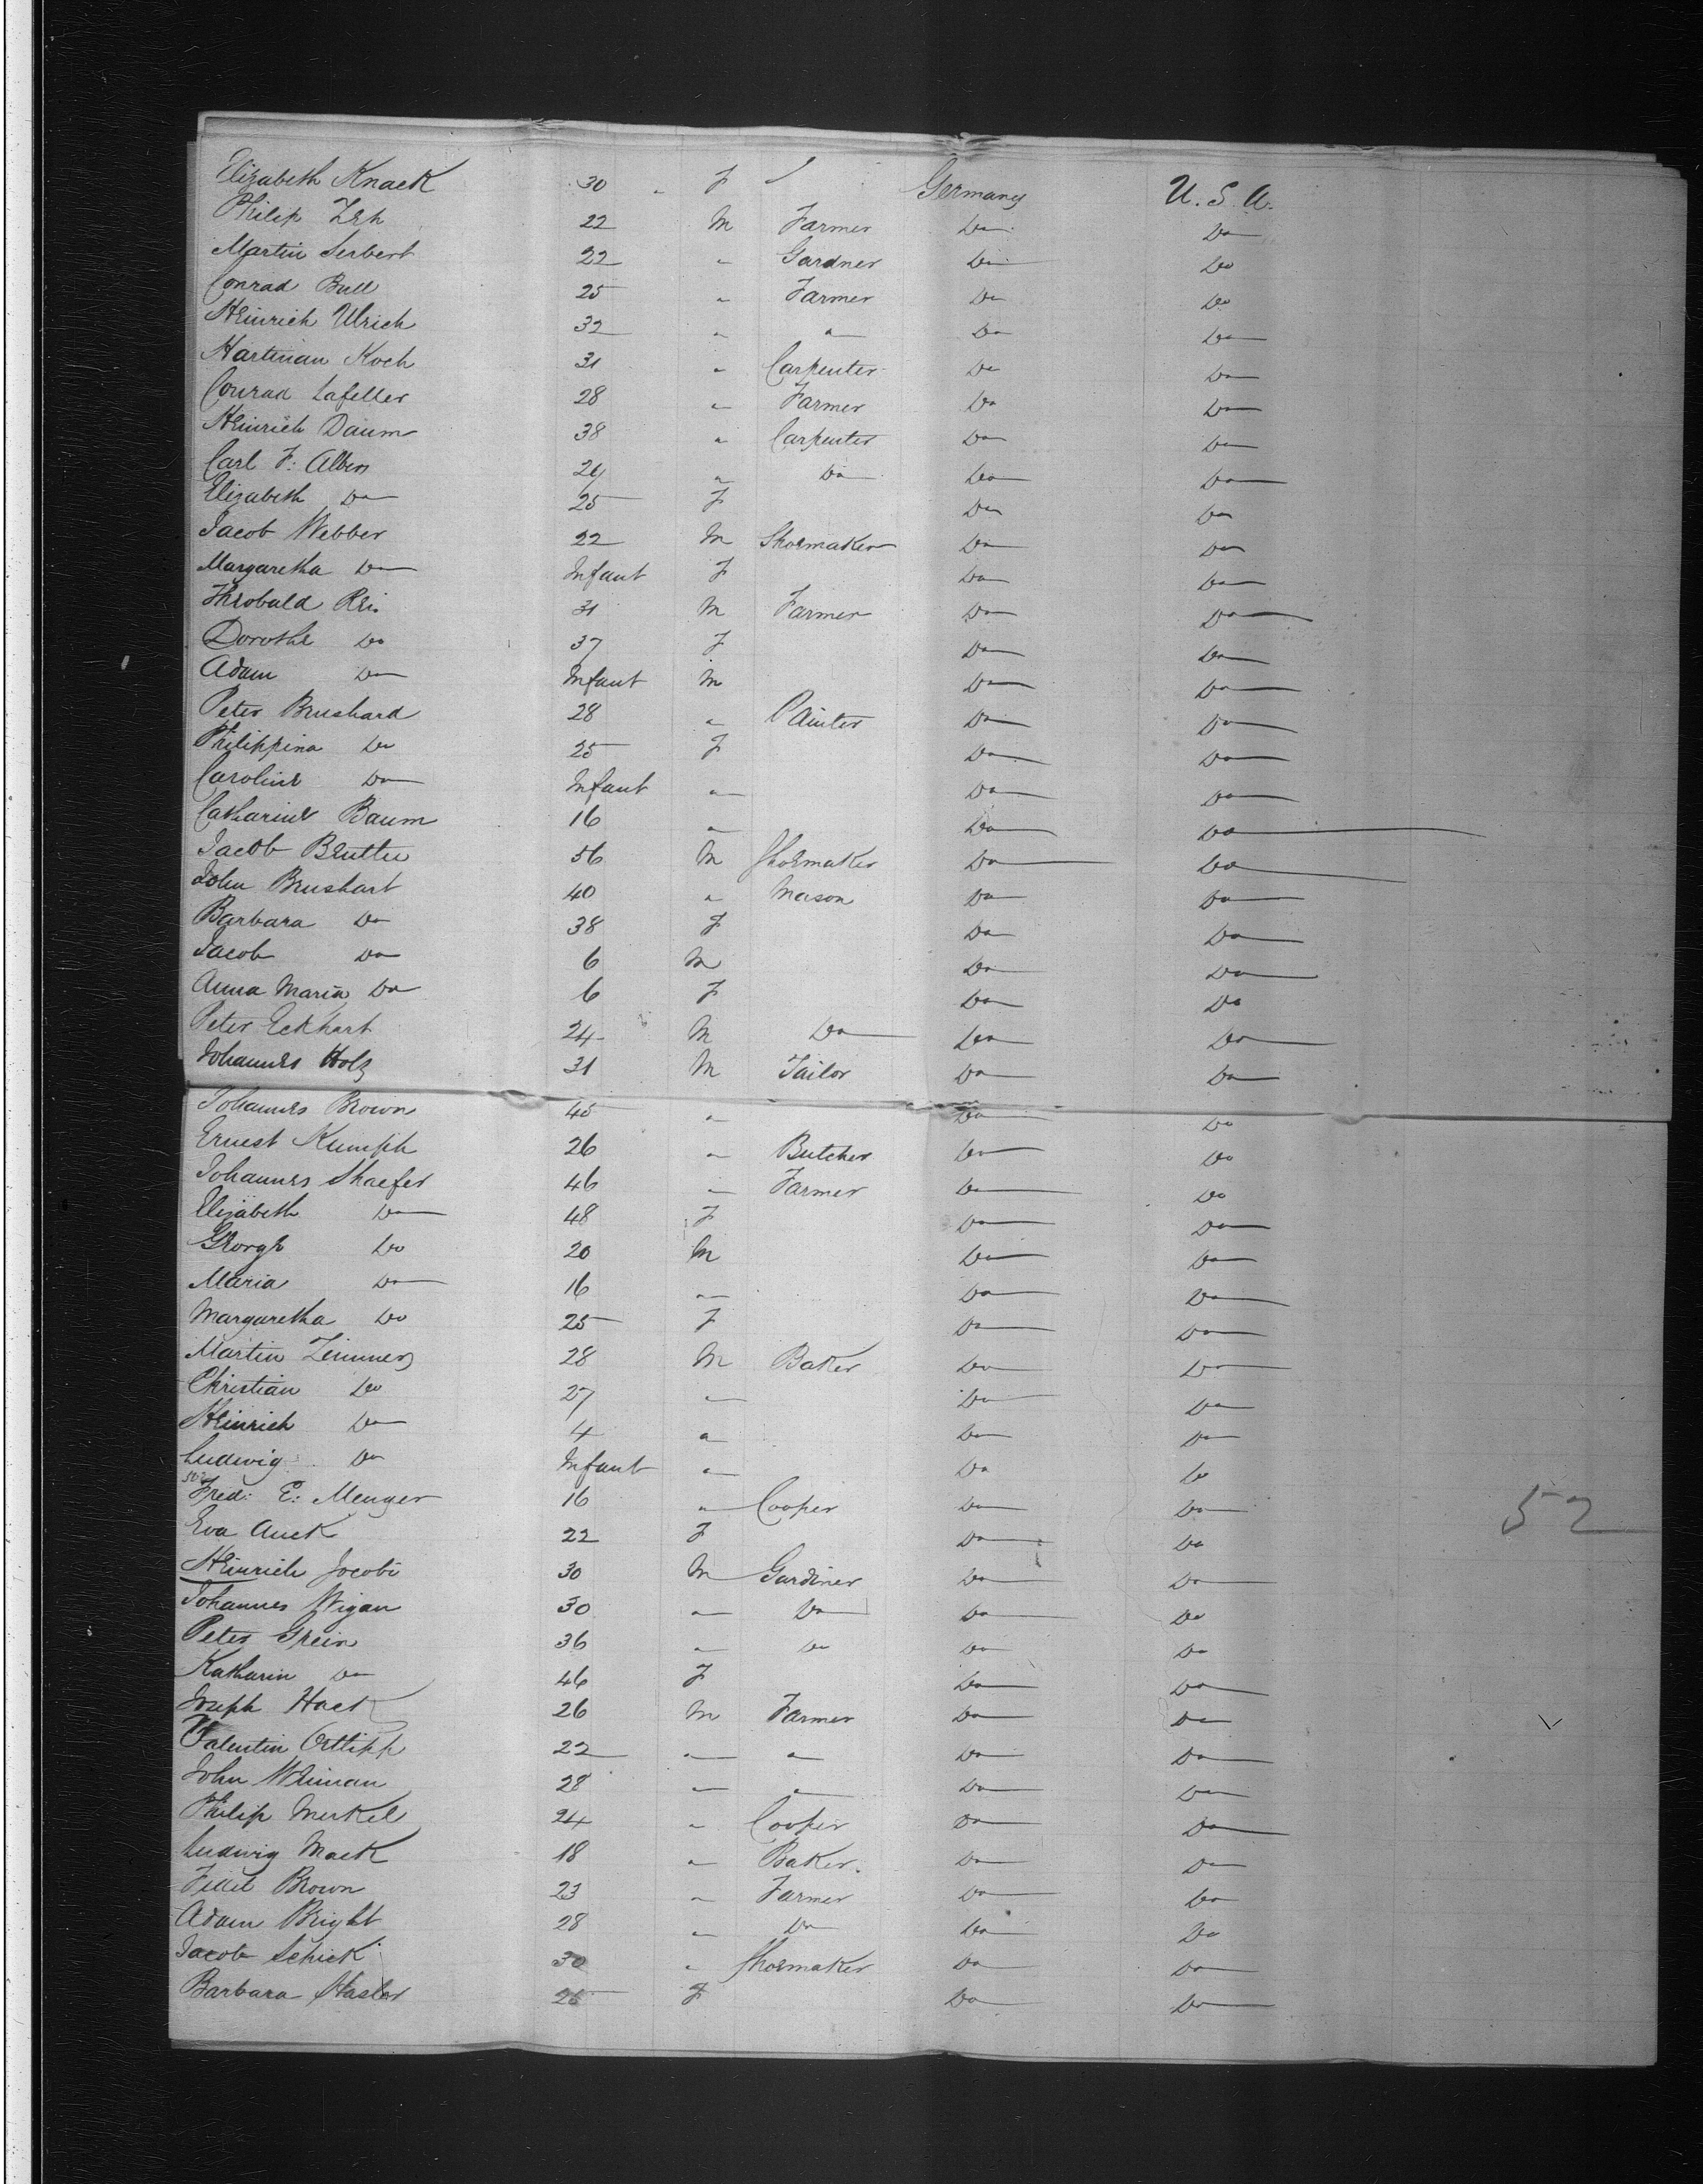 Elizabeth Knack 30 " F Germany U. S. A.
Philip Zeh 22 M Farmer Do Do
Martin Serbert 22 " Gardner Do Do
Conrad Bull 25 " Farmer Do Do
Heinrich Ulrich 32 " " Do Do
Hartman Koch 31 " Carpenter Do Do
Conrad Lafeller 28 " Farmer Do Do
Heinrich Daum 38 " Carpenter Do Do
Carl F: Albers 29 " Do Do Do
Elizabeth Do 25 F Do Do
Jacob Webber 22 M Shoemaker Do Do
Margaretha Do Infant F Do Do
Theobald Rei 31 M Farmer Do Do
Dorothe Do 37 F Do Do
Adam Do Infant M Do Do
Peter Brushard 28 " Painter Do Do
Philippina Do 25 F Do Do
Caroline Do Infant " Do Do
Catharine Baum 16 " Do Do
Jacob 56 M Shoemaker Do Do
John Brushart 40 " Mason Do Do
Barbara Do 38 F Do Do
Jacob Do 6 M Do Do
Anna Maria Do 6 F Do Do
Peter Eckhart 24 M Do Do Do
Johannes Holz 31 M Tailor Do Do
Johannes Brown 45 " Do Do
Ernest Kumph 26 " Butcher Do Do
Johannes Shaefer 46 " Farmer Do Do
Elizabeth Do 48 F Do Do
George Do 20 M Do Do
Maria Do 16 " Do Do
Margaretha Do 25 F Do Do
Martin Zimmer 28 M Baker Do Do
Christian Do 27 " Do Do
Heinrich Do 4 " Do Do
Ludwig Do Infant " Do Do
Fred: E: Menger 16 " Cooper Do Do
52
Eva Auck 22 F Do Do
Heinrich Jacobi 30 M Gardiner Do Do
Johannes Wigan 30 " Do Do Do
Peter Grein 36 " Do Do Do
Katharin Do 46 F Do Do
Joseph Hack 26 M Farmer Do Do
Valentin Ottlipp 22 " " Do Do
John Weiman 28 " " Do Do
Philip Merkel 24 " Cooper Do Do
Ludwig Mack 18 " Baker Do Do
Brown 23 " Farmer Do Do
Adam Bright 28 " Do Do Do
Jacob Schick 30 " Shoemaker Do Do
Barbara Haslor 25 F Do Do